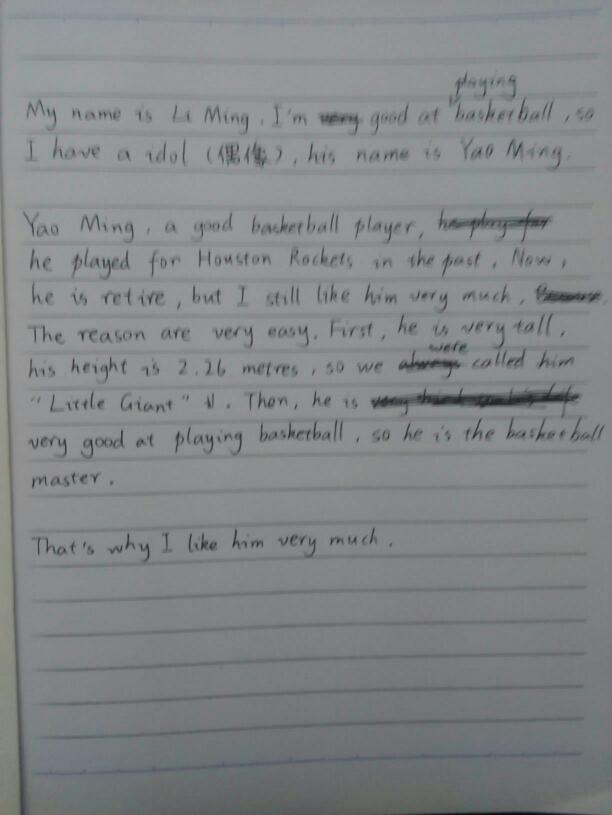 My name is Li Ming, I'm good at playing basketball, so
I have a idol (偶像), his name is Yao Ming.
Yao Ming, a good basketball player,
he played for Houston Rockets in the past. Now,
he is retire, but I still like him very much.
The reason are very easy. First, he is very tall,
his height is 2.26 metres, so we were called him
"Little Giant". Then, he is
very good at playing basketball, so he is the basketball
master.
That's why I like him very much.